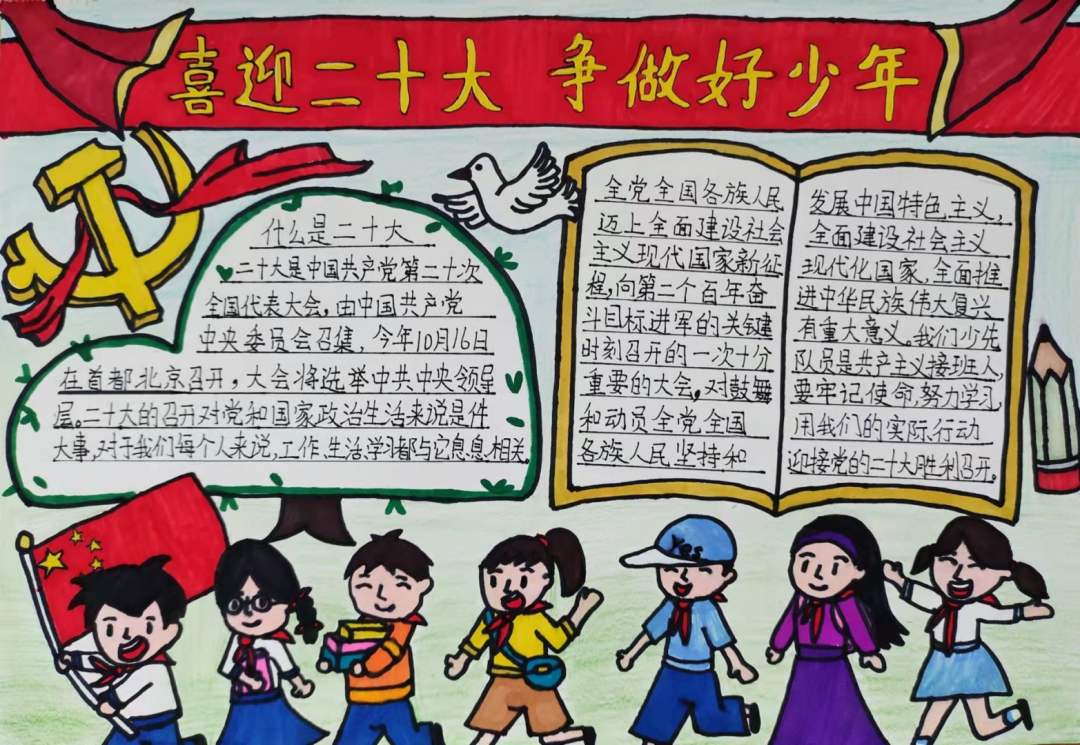 喜迎二十大 争做好少年
什么是二十大
二十大是中国共产党第二十次
全国代表大会,由中国共产党
中央委员会召集,今年10月16日
在首都北京召开,大会将选举中共中央领导
层。二十大的召开对党和国家政治生活来说是件
大事,对于我们每个人来说,工作、生活、学习都与它息息相关
全党全国各族人民
迈上全面建设社会
主义现代国家新征
程,向第二个百年奋
斗目标进军的关键
时刻召开的一次十分
重要的大会,对鼓舞
和动员全党全国
各族人民坚持和
发展中国特色主义,
全面建设社会主义
现代化国家、全面推
进中华民族伟大复兴
有重大意义。我们少先
队员是共产主义接班人,
要牢记使命,努力学习,
用我们的实际行动
迎接党的二十大胜利召开。
Yes